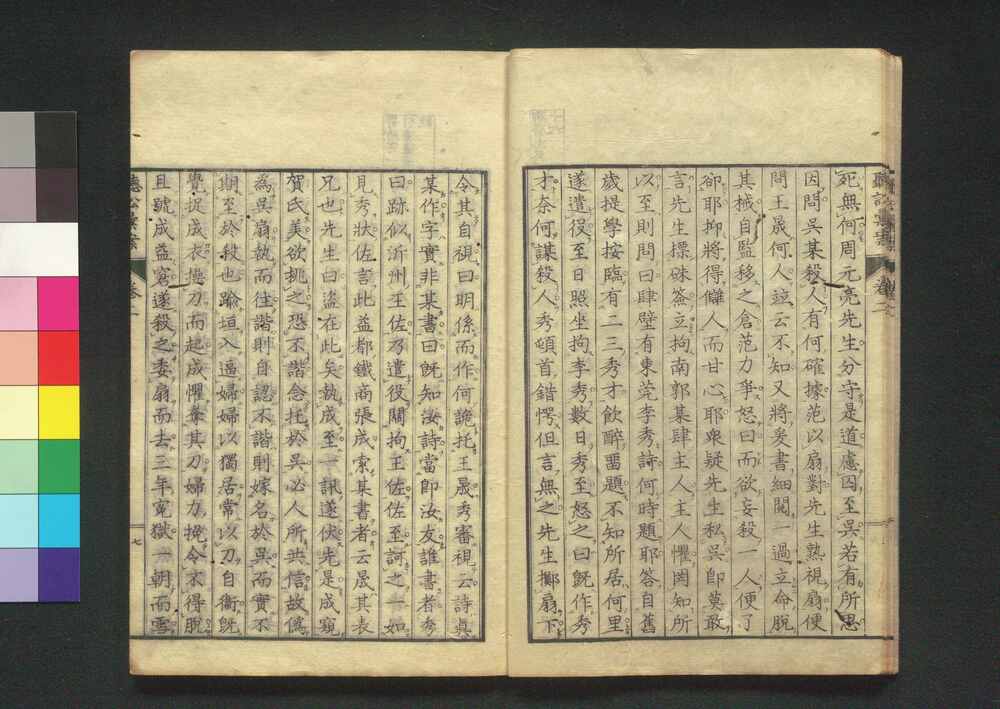 死無何周元亮先生分守是道慮囚至吳若有所思
因問吳某殺人有何確據范以扇對先生熟視扇便
問王晟何人竝云不知又將爰書細閱一過立命脫
其械自監移之倉范力爭怒曰而欲妄殺一人便了
卻耶抑將得讎人而甘心耶衆疑先生私吳卽莫敢
言先生標硃簽立拘南郭某肆主人主人懼罔知所
以至則問曰肆壁有東莞李秀詩何時題耶答自舊
歲提學按臨有二三秀才飮醉畱題不知所居何里
遂遣役至日照坐拘李秀數日秀至怒之曰旣作秀
才奈何謀殺人秀頓首錯愕但言無之先生擲扇下
令其自視曰明係而作何詭托王晟秀審視云詩眞
某作字實非某書曰旣知汝詩當卽汝友誰書者秀
曰跡似沂州王佐乃遣役關拘王佐佐至訶之一如
見秀狀佐言此益都鐵商張成索某書者云晟其表
兄也先生曰盜在此矣執成至一訊遂伏先是成窺
賀氏美欲挑之恐不諧念托於吳必人所共信故僞
爲吳扇執而往諧則自認不諧則嫁名於吳而實不
期至於殺也踰垣入逼婦婦以獨居常以刀自衞旣
覺捉成衣操刀而起成懼奪其刀婦力挽令不得脫
且號成益窘遂殺之委扇而去三年冤獄一朝而雪
卷二
七